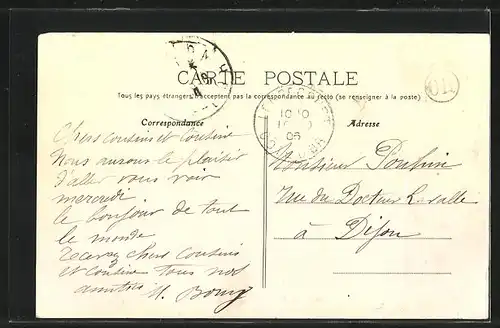 CARTE POSTALE
Tous les pays étrangers n'acceptent pas la correspondance au recto (se renseigner à la poste)
Correspondance
Adresse
Chers cousins et cousine
Nous aurons le plaisir
d'aller vous voir
mercredi
le bonjour de tout
le monde
recevez chers cousins
et cousine tous nos
amitiés
Monsieur
Rue du Docteur Lavalle
à Dijon
06
OR